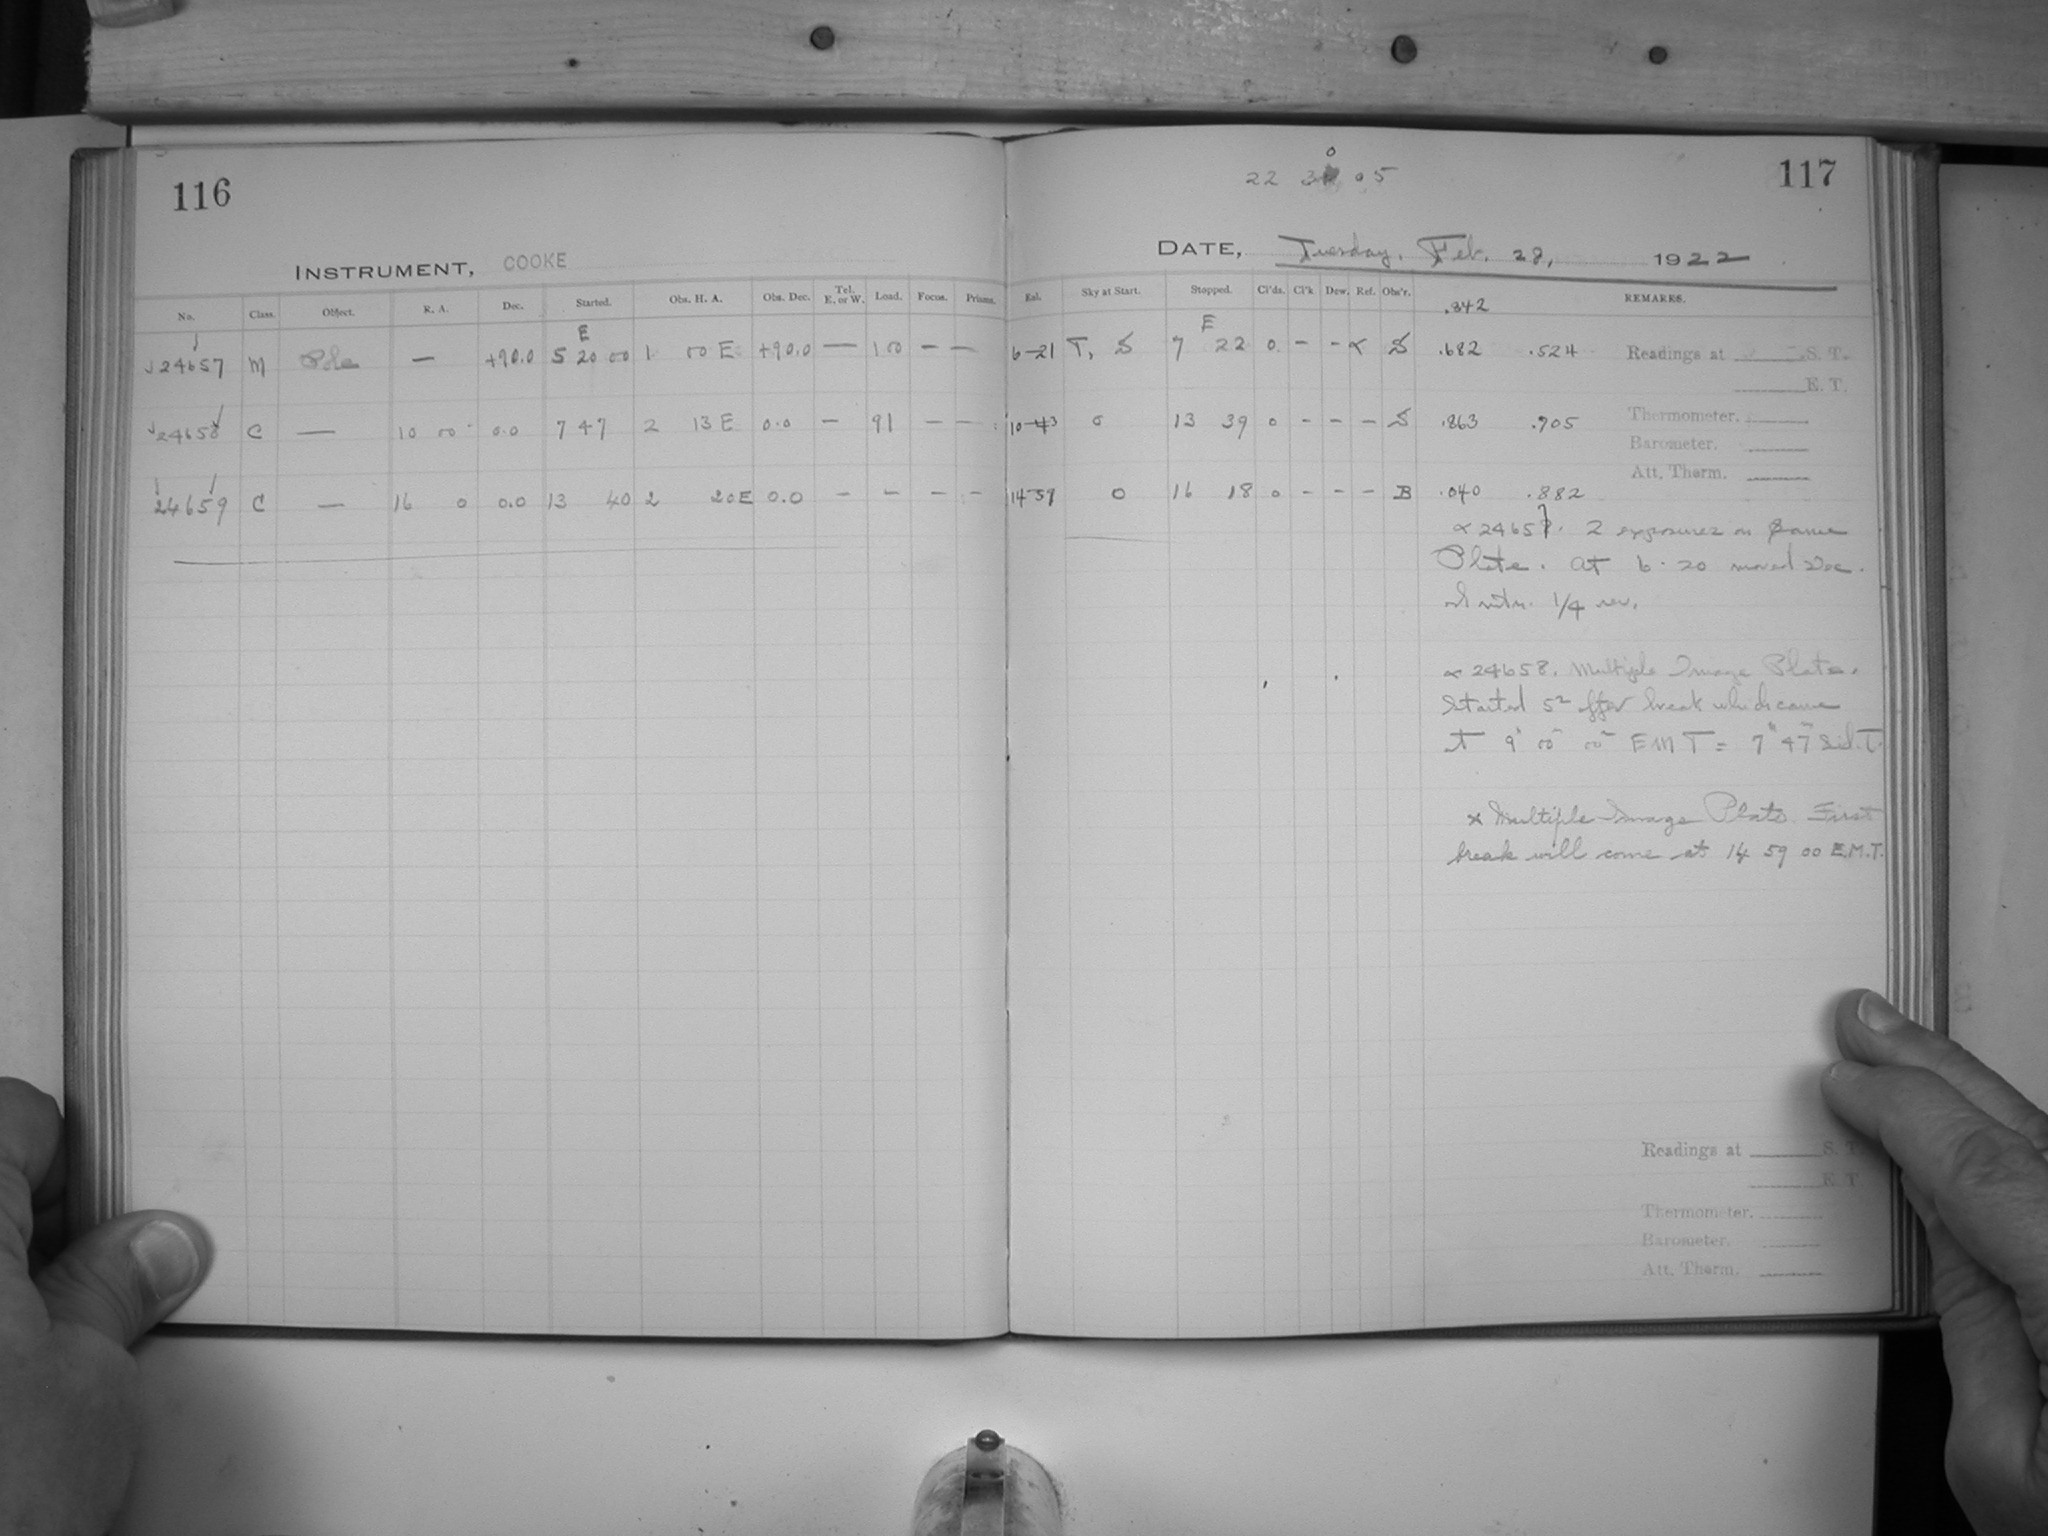 116
INSTRUMENT, COOKE
No. Class. Object. R. A. Dec. Started. Obs. H. A. Obs. Dec. Tel. E. or W. Load. Focus. Prisms.
24657 M Pole — +90.0 E 5 20 00 1 00 E +90.0 — 100 — —
24658 C — 10 00 0.0 7 47 2 13 E 0.0 — 91 — —
24659 C — 16 0 0.0 13 40 2 20 E 0.0 — — — —
22 30 05
117
DATE, Tuesday, Feb. 28, 1922
Exl. Sky at Start. Stopped. Cl'ds. Cl'k Dew. Ref. Obs'r. REMARKS.
.842
6-21 T, S E 7 22 0 - - α S .682 .524 Readings at S. T.
E. T.
10-43 0 13 39 0 - - - S .863 .705 Thermometer.
Barometer.
Att. Therm.
14 59 0 16 18 0 - - - B .040 .882
α 24657. 2 exposures on same
Plate. At 6.20 moved Dec.
1/4 rev.
α 24658. Multiple Image Plate.
Started after break which came
at 9 00 00 EMT = 7 47 Sid. T
x Multiple Image Plate. First
break will come at 14 59 00 E.M.T.
Readings at S. T
E. T
Thermometer.
Barometer.
Att. Therm.